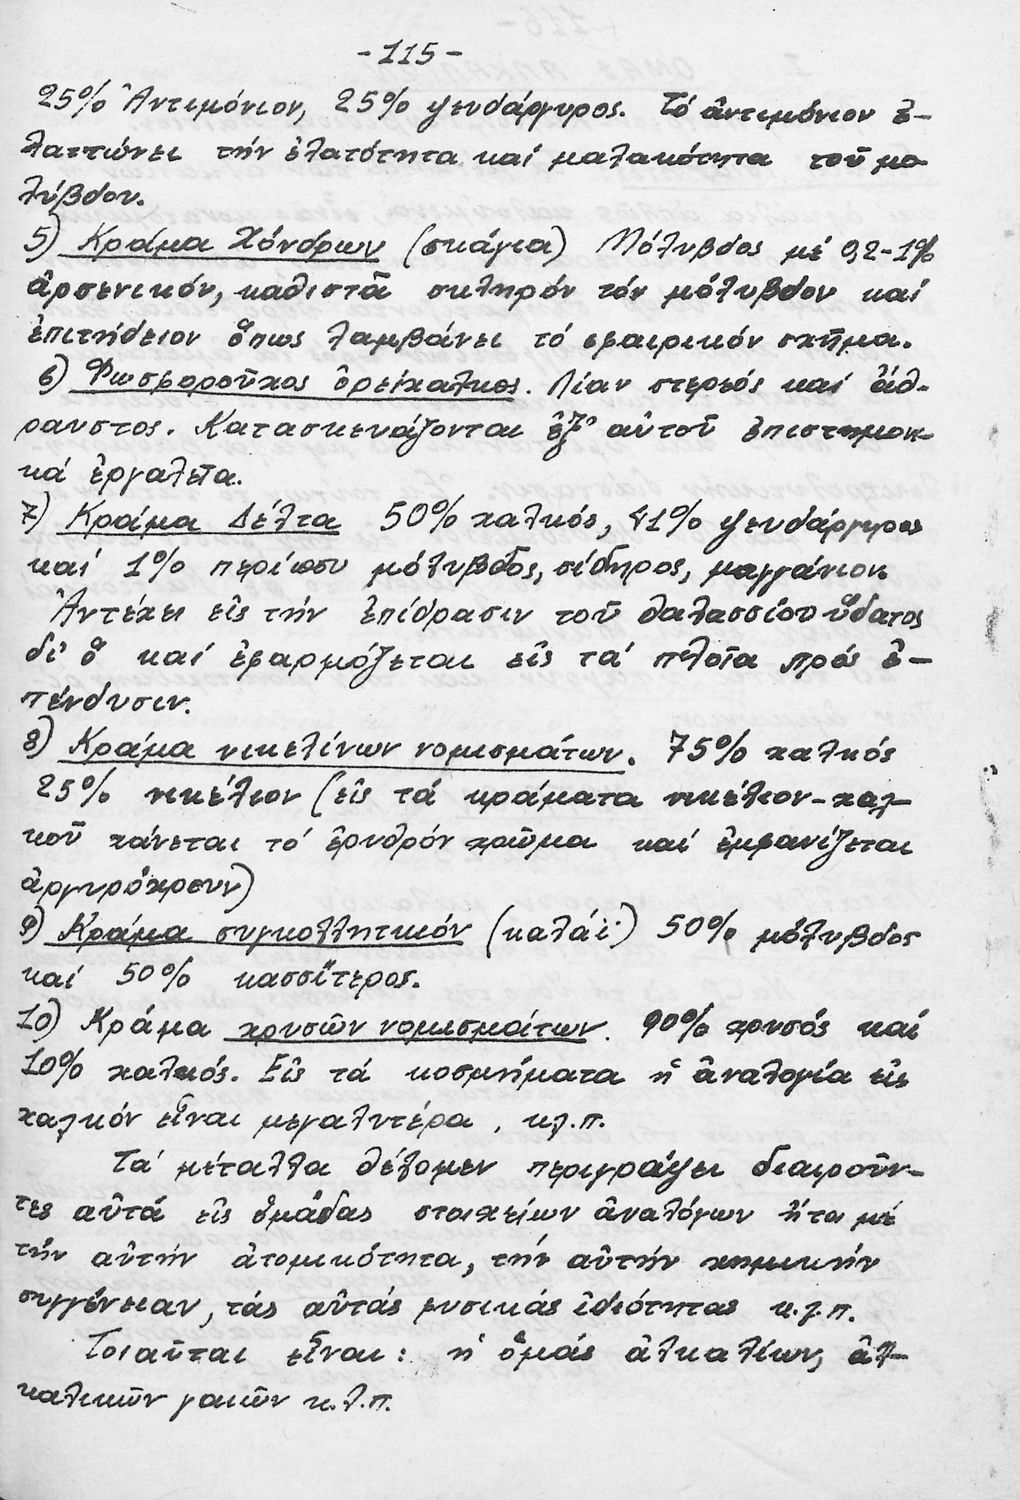 -115-
25% Ἀντιμόνιον, 25% ψευδάργυρος. Τό ἀντιμόνιον ἐ-
λαττώνει τήν ἐλατότητα καί μαλακότητα τοῦ μο
λύβδου.
5) Κράμα Χόνδρων (σκάγια) Μόλυβδος μέ 0,2-1%
ἀρσενικόν, καθιστᾶ σκληρόν τόν μόλυβδον καί
ἐπιτήδειον ὅπως λαμβάνει τό σφαιρικόν σχῆμα.
6) Φωσφοροῦχος ὀρείχαλκος. Λίαν στερεός καί ἄθ-
ραυστος. Κατασκευάζονται ἐξ' αὐτοῦ ἐπιστημονι-
κά ἐργαλεῖα.
7) Κράμα Δέλτα 50% χαλκός, 41% ψευδάργυρος
καί 1% περίπου μόλυβδος, σίδηρος, μαγγάνιον.
Ἀντέχει εἰς τήν ἐπίδρασιν τοῦ θαλασσίου ὕδατος
δι' ὅ καί ἐφαρμόζεται εἰς τά πλοῖα πρός ἐ-
πένδυσιν.
8) Κράμα νικελίνων νομισμάτων. 75% χαλκός
25% νικέλιον (εἰς τά κράματα νικέλιον-χαλ-
κοῦ χάνεται τό ἐρυθρόν χρῶμα καί ἐμφανίζεται
ἀργυρόχρουν)
9) Κράμα συγκολλητικόν (καλάϊ) 50% μόλυβδος
καί 50% κασσίτερος.
10) Κράμα χρυσῶν νομισμάτων. 90% χρυσός καί
10% χαλκός. Εἰς τά κοσμήματα ἡ ἀναλογία εἰς
χαλκόν εἶναι μεγαλυτέρα, κ.λ.π.
Τά μέταλλα θέλομεν περιγράψει διαιροῦν-
τες αὐτά εἰς ὁμάδας στοιχείων ἀναλόγων ἤτοι μέ
τήν αὐτήν ἀτομικότητα, τήν αὐτήν χημικήν
συγγένειαν, τάς αὐτάς φυσικάς ἰδιότητας κ.λ.π.
Τοιαῦται εἶναι: ἡ ὁμάς ἀλκαλίων, ἀλ-
καλικῶν γαιῶν κ.λ.π.